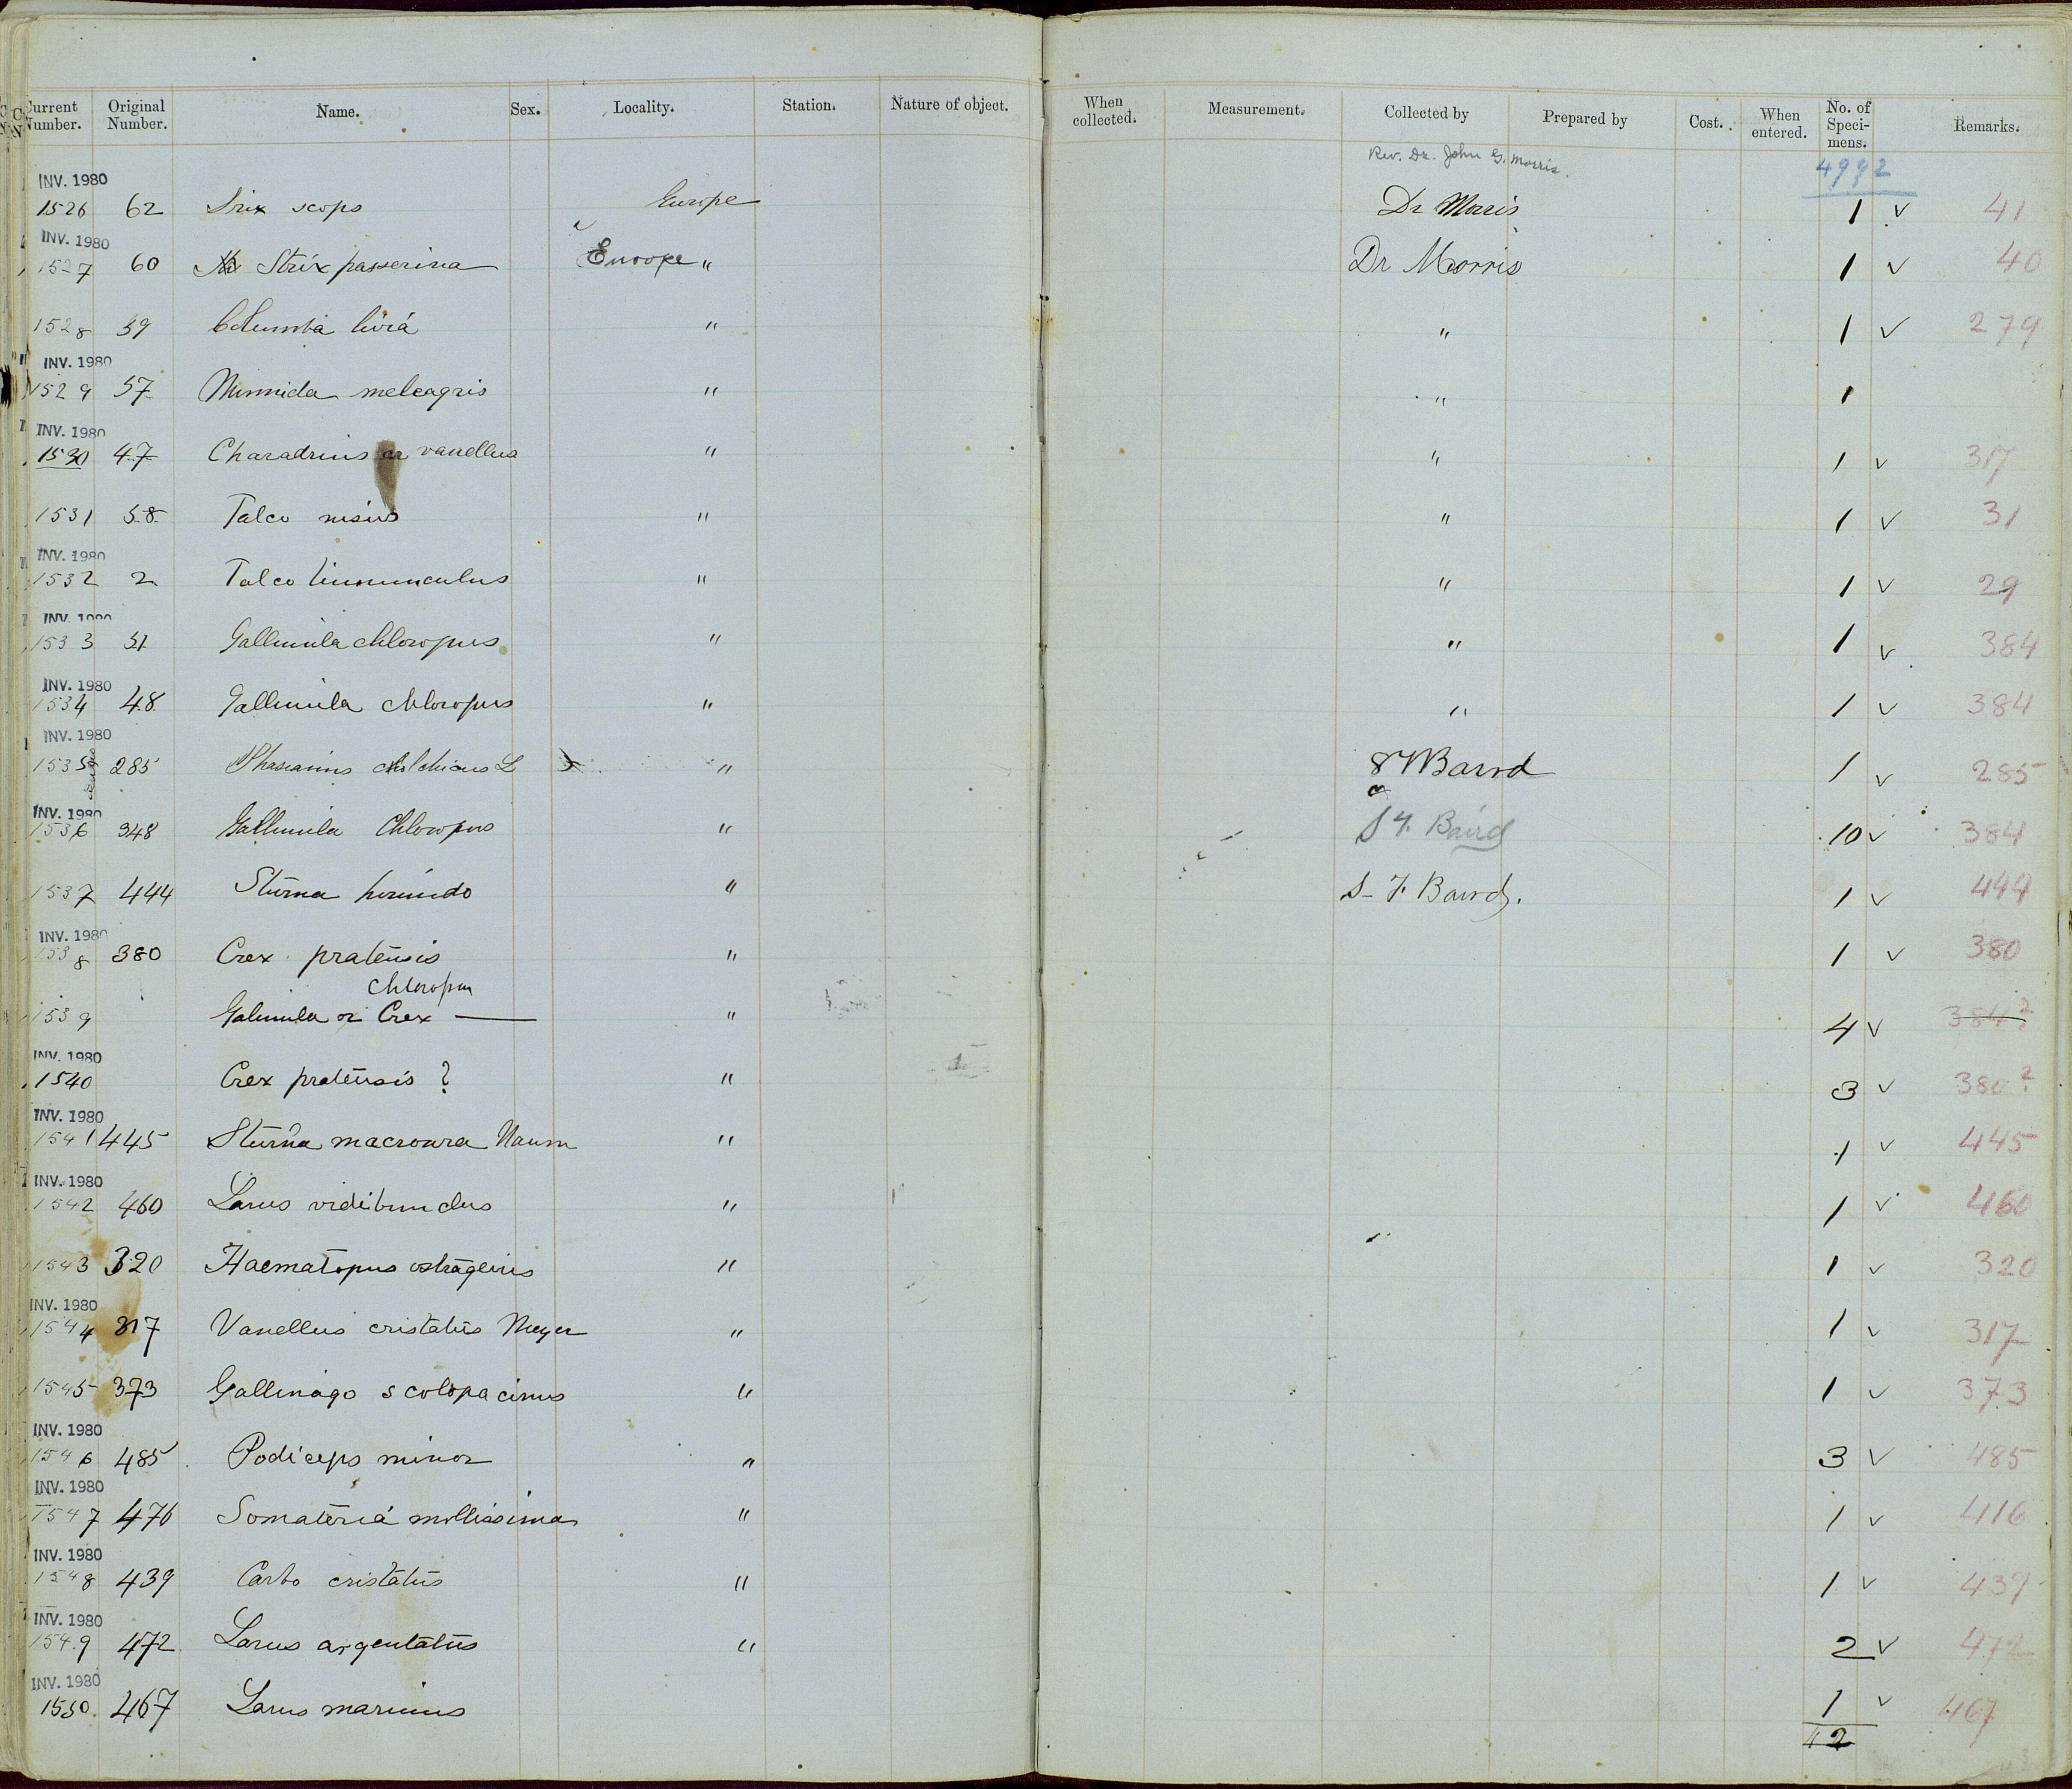 Current Number. Original Number. Name. Sex. Locality. Station. Nature of object. When collected. Measurement. Collected by Prepared by Cost. When entered. No. of Speci-mens. Remarks.
Rev. Dr. John G. Morris. 4992
INV. 1980
1526 62 Strix scops Europe Dr Morris 1 ✓ 41
INV. 1980
1527 60 Strix passerina Europe " Dr Morris 1 ✓ 40
1528 59 Columba livia " " 1 ✓ 279
INV. 1980
1529 57 Numida meleagris " " 1
INV. 1980
1530 47 Charadrius vanellus " " 1 ✓ 317
1531 58 Falco nisus " " 1 ✓ 31
INV. 1980
1532 2 Falco tinnunculus " " 1 ✓ 29
INV. 1980
1533 51 Gallinula chloropus " " 1 ✓ 384
INV. 1980
1534 48 Gallinula chloropus " " 1 ✓ 384
INV. 1980
1535 285 Phasianus cholchicus L " S F Baird 1 ✓ 285
INV. 1980
1536 348 Gallinula Chloropus " S F. Baird 10 ✓ 384
1537 444 Sterna hirundo " S- F. Baird. 1 ✓ 444
INV. 1980
1538 380 Crex pratensis " 1 ✓ 380
chloropus
1539 Galinula or Crex — " 4 ✓ 384?
INV. 1980
1540 Crex pratensis ? " 3 ✓ 380?
INV. 1980
1541 445 Sterna macroura Naum " 1 ✓ 445
INV. 1980
1542 460 Larus ridibundus " 1 ✓ 460
1543 320 Haematopus ostragelus " 1 ✓ 320
INV. 1980
1544 317 Vanellus cristatus Meyer " 1 ✓ 317
1545 373 Gallinago scolopacinus " 1 ✓ 373
INV. 1980
1546 485 Podiceps minor " 3 ✓ 485
INV. 1980
1547 476 Somateria mollissima " 1 ✓ 416
INV. 1980
1548 439 Carbo cristatus " 1 ✓ 439
INV. 1980
1549 472 Larus argentatus " 2 ✓ 472
INV. 1980
1550 467 Larus marinus 1 ✓ 467
42